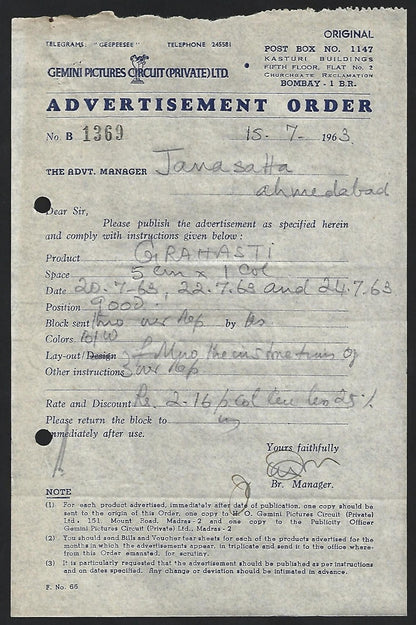 ORIGINAL
TELEGRAMS: "GEEPEESEE" TELEPHONE 245581
POST BOX NO. 1147
KASTURI BUILDINGS
FIFTH FLOOR, FLAT No. 2
CHURCHGATE RECLAMATION
BOMBAY - 1 B.R.
GEMINI PICTURES CIRCUIT (PRIVATE) LTD.
ADVERTISEMENT ORDER
No. B 1369 15-7-1963
THE ADVT. MANAGER Janasatta
ahmedabad
Dear Sir,
Please publish the advertisement as specified herein
and comply with instructions given below:
Product GRAHASTI
Space 5 cm x 1 Col
Date 20-7-63, 22.7.63 and 24.7.63
Position good
Block sent thro our rep by
Colors B/W
Lay-out/Design the instructions of
Other instructions our rep
Rate and Discount Rs. 2-16 p col less 25%
Please return the block to us
immediately after use.
Yours faithfully
Br. Manager.
NOTE
(1) For each product advertised, immediately after date of publication, one copy should be
sent to the origin of this Order, one copy to H. O. Gemini Pictures Circuit (Private)
Ltd., 151, Mount Road, Madras-2 and one copy to the Publicity Officer
Gemini Pictures Circuit (Private) Ltd., Madras-2
(2) You should send Bills and Voucher tear sheets for each of the products advertised for the
months in which the advertisements appear, in triplicate and send it to the office where-
from this Order emanated, for scrutiny.
(3) It is particularly requested that the advertisement should be published as per instructions
and on dates specified. Any change or deviation should be intimated in advance.
F. No. 66